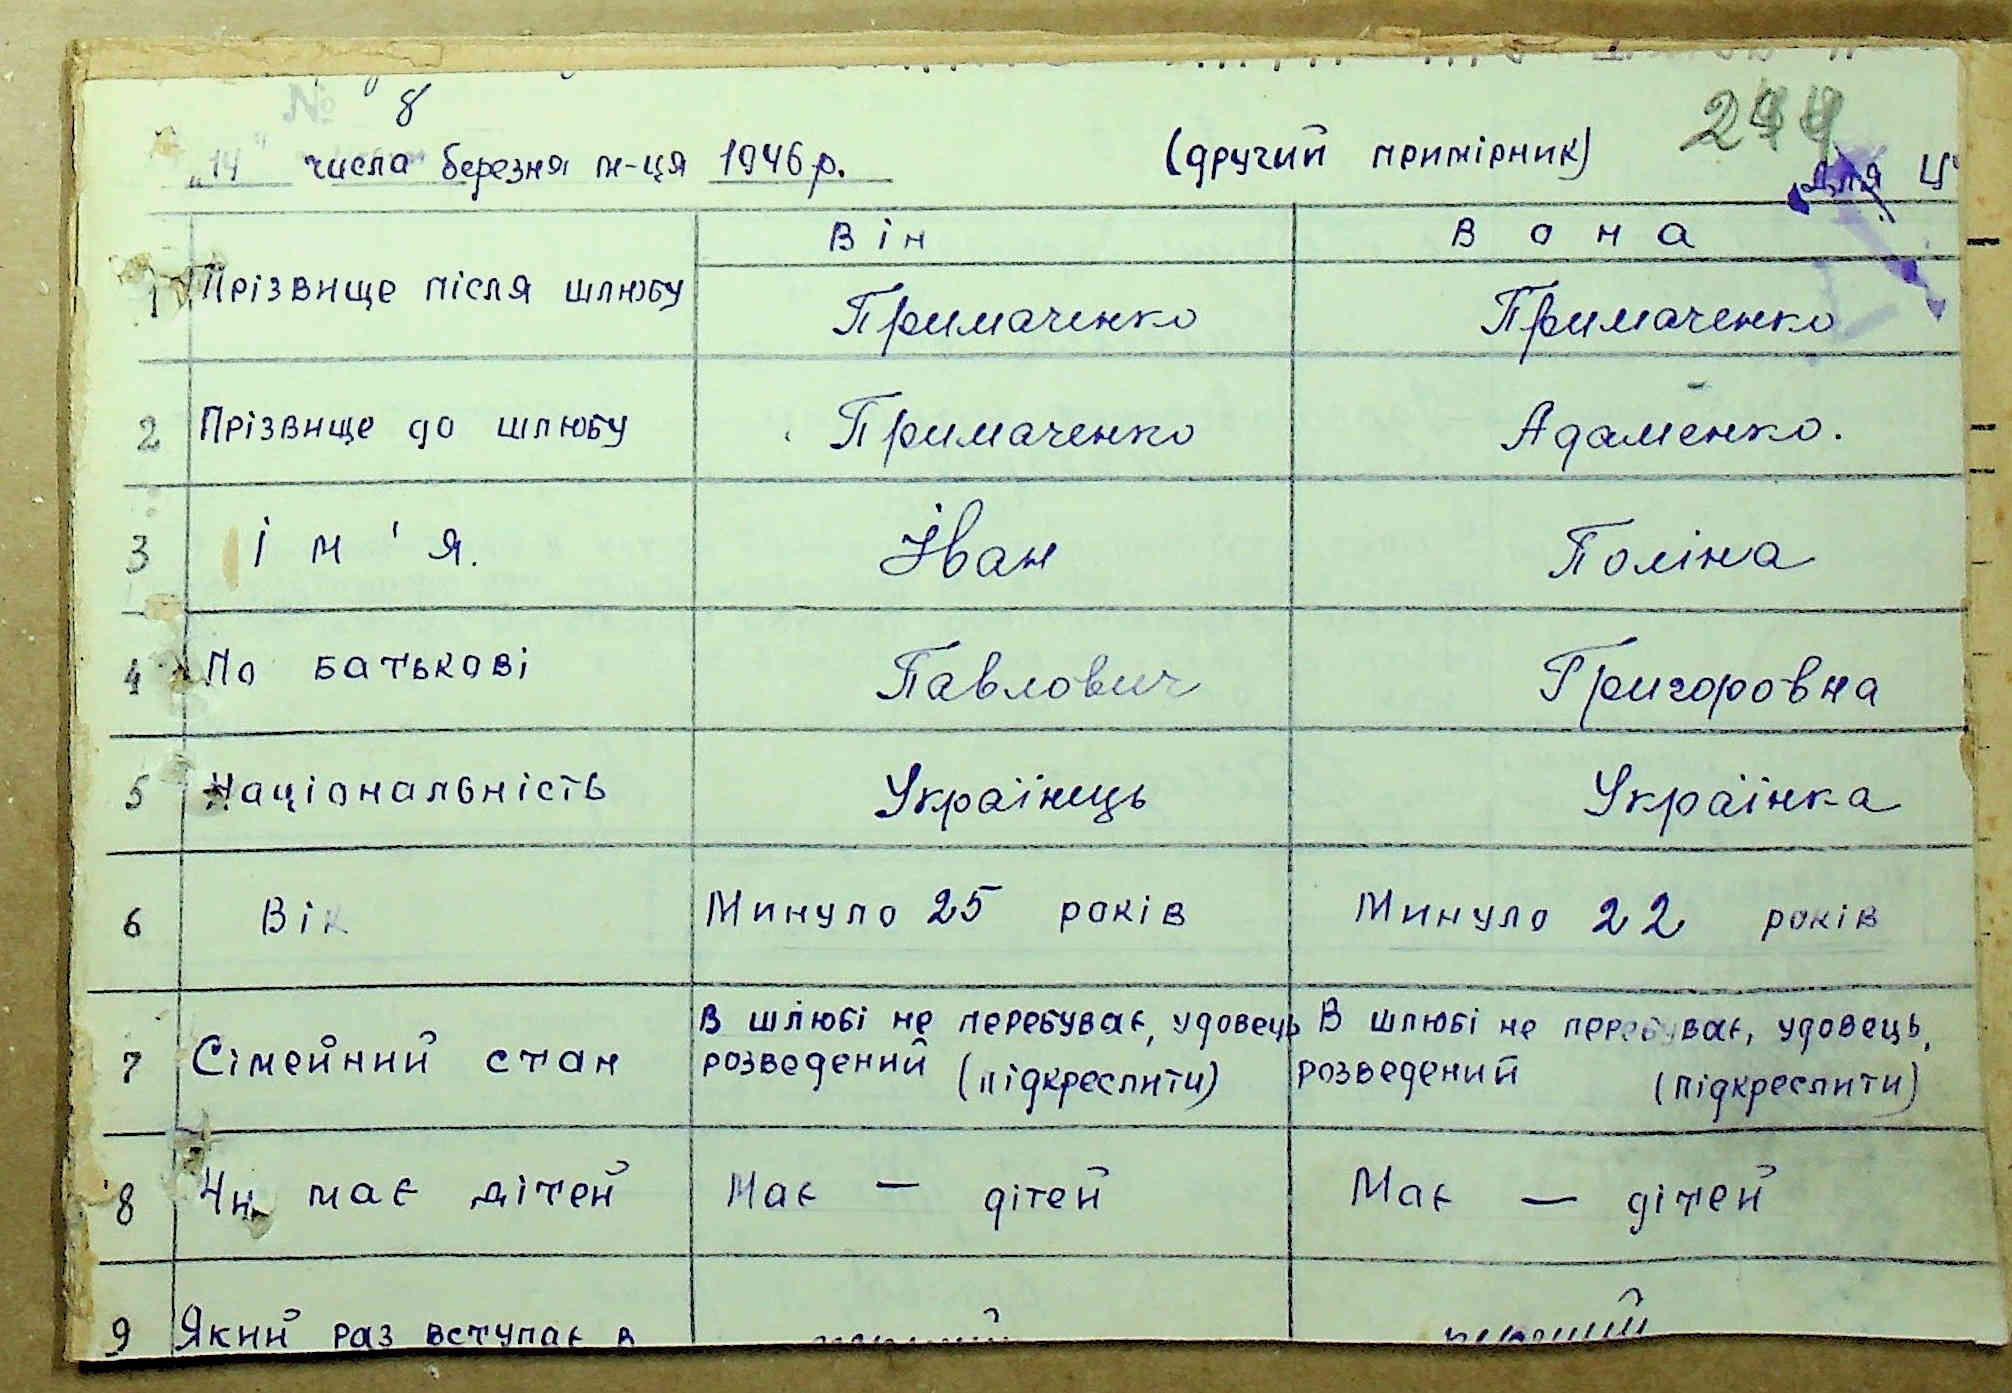 № 8
"14" числа березня м-ця 1946 р. (другий примірник) 244
для
Він Вона
1 Прізвище після шлюбу Примаченко Примаченко
2 Прізвище до шлюбу Примаченко Адаменко.
3 Ім'я. Іван Поліна
4 По батькові Павлович Григоровна
5 Національність Українець Українка
6 Вік Минуло 25 років Минуло 22 років
7 Сімейний стан В шлюбі не перебуває, удовець В шлюбі не перебуває, удовець,
розведений (підкреслити) розведений (підкреслити)
8 Чи має дітей Має — дітей Має — дітей
9 Який раз вступає в